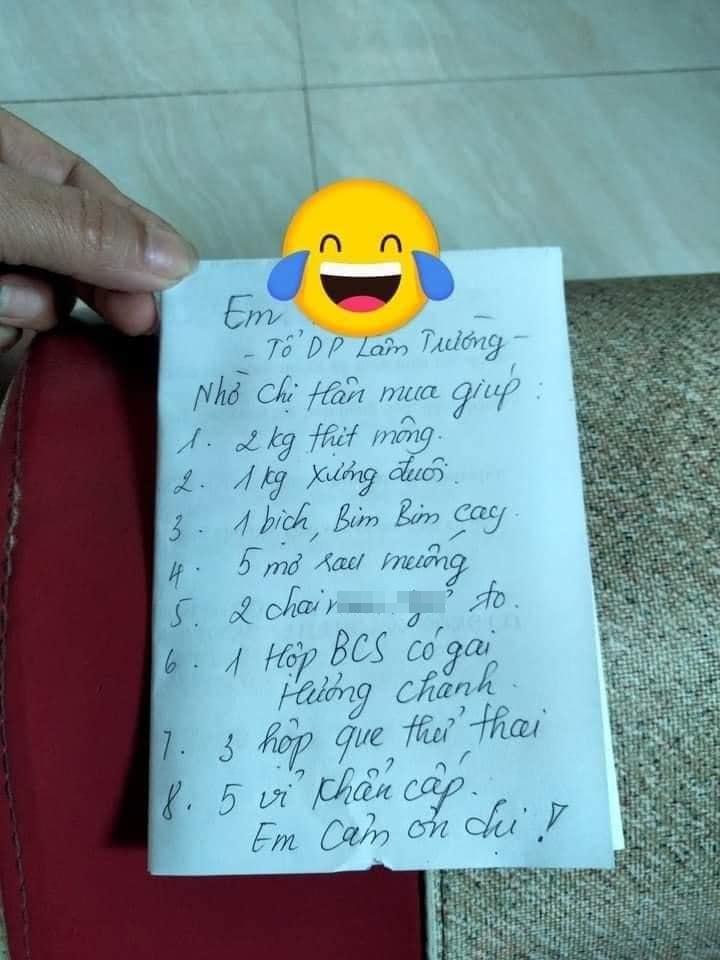 Em
- Tổ DP Lâm Trường -
Nhờ chị Hân mua giúp :
1. 2 kg thịt mông.
2. 1 kg xương đuôi.
3. 1 bịch, Bim Bim cay.
4. 5 mớ rau muống
5. 2 chai to.
6. 1 Hộp BCS có gai
Hương chanh.
7. 3 hộp que thử thai
8. 5 vỉ khẩn cấp.
Em Cảm ơn chị !